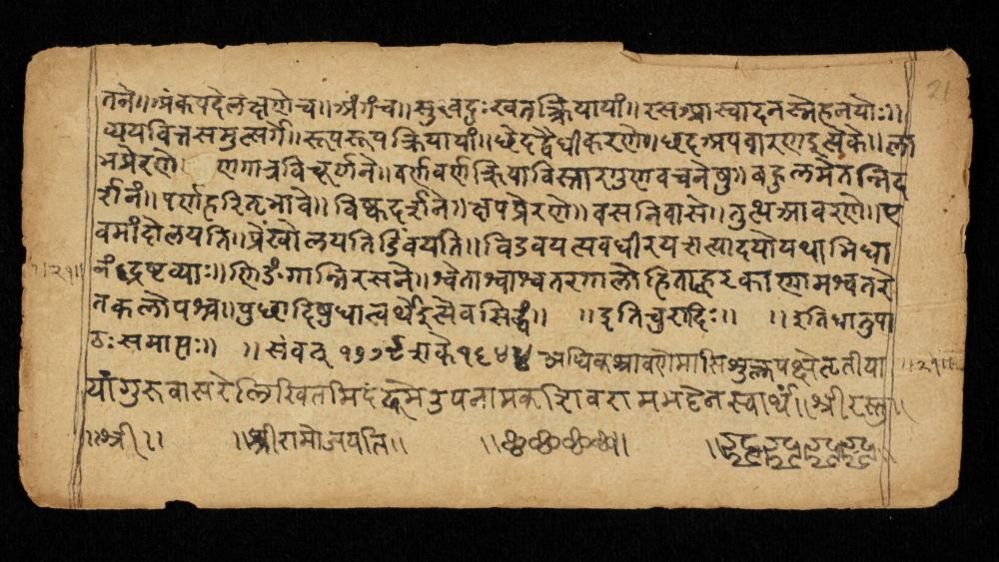 तने॥अंकपदेलक्षणेच॥अंगंच॥सुखदुःखतत्क्रियायां॥रसआस्वादनस्नेहनयोः॥
व्ययवित्तसमुत्सर्गे॥रूपरूपक्रियायां॥छेदद्वैधीकरणे॥छदअपवारणइत्येके॥ला
भप्रेरणे व्रणगात्रविचूर्णने॥वर्णवर्णक्रियाविस्तारगुणवचनेषु॥बहुलमेतन्निद
र्शनं॥पर्णहरितभावे॥विष्कदर्शने॥क्षपप्रेरणे॥वसनिवासे॥तुत्थआवरणे॥ए
वमांदोलयति॥प्रेंखोलयति विडंबयति॥
नं द्रष्टव्याः॥ श्वेताश्वाश्वतरगालोडिताह्वरकाणामश्वतरे
तकलोपश्च॥पुच्छादिषुधात्वर्थेइत्येवसिद्धं॥ ॥इतिचुरादिः॥ ॥इतिधातुपा
ठःसमाप्तः॥ ॥संवत् शके अधिकश्रावणेमासिशुक्लपक्षेतृतीया
यांगुरुवासरेलिखितमिदं उपनामक स्वार्थं॥श्रीरस्तु॥
॥श्री॥ ॥श्रीरामोजयति॥ ॥छ॥
॥२१॥
॥२१॥
21